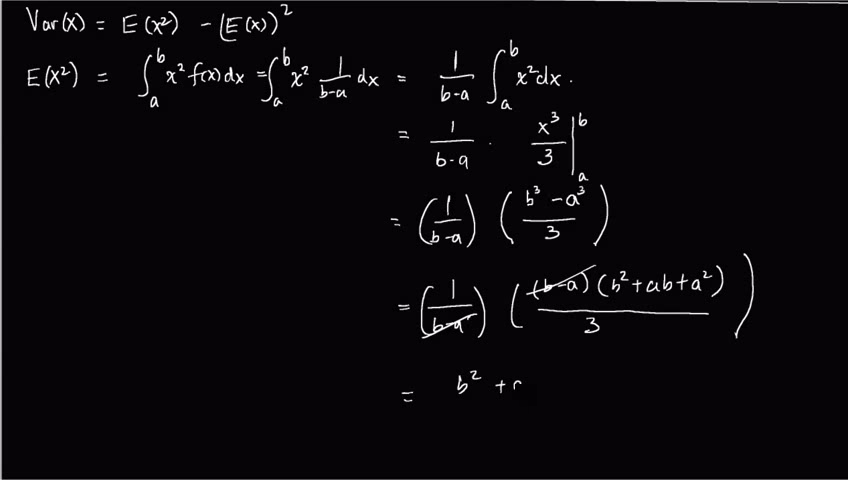 Var(x) = E(x²) - (E(x))²
E(x²) = ∫_a^b x² f(x) dx = ∫_a^b x² 1/(b-a) dx = 1/(b-a) ∫_a^b x² dx.
= 1/(b-a) · x³/3 |_a^b
= (1/(b-a)) ((b³ - a³)/3)
= (1/(b-a)) ((b-a)(b² + ab + a²)/3)
= b² +